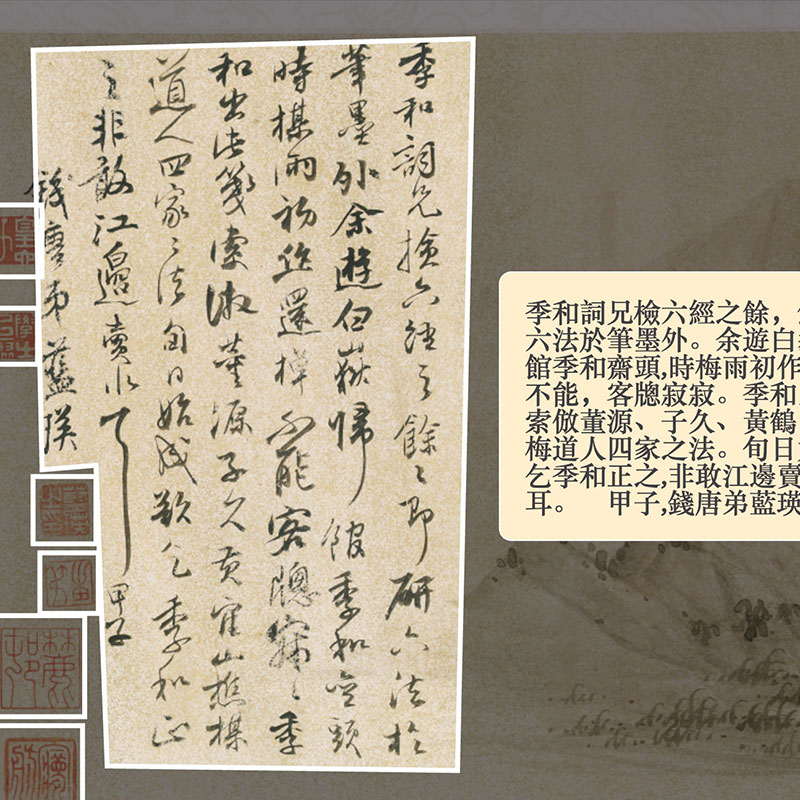 季和詞兄檢六經之餘〻即研六法於
筆墨外余遊白嶽歸館季和齋頭
時楳雨初作還棹不能客牎寂〻季
和出佳箋索倣董源子久黃隺山樵楳
道人四家之法旬日始成欵乞季和正
之非敢江邊賣水耳 甲子
錢唐弟藍瑛
季和詞兄檢六經之餘，
六法於筆墨外。余遊白
館季和齋頭,時梅雨初作
不能，客牕寂寂。季和
索倣董源、子久、黃鶴
梅道人四家之法。旬日
乞季和正之,非敢江邊賣
耳。 甲子,錢唐弟藍瑛